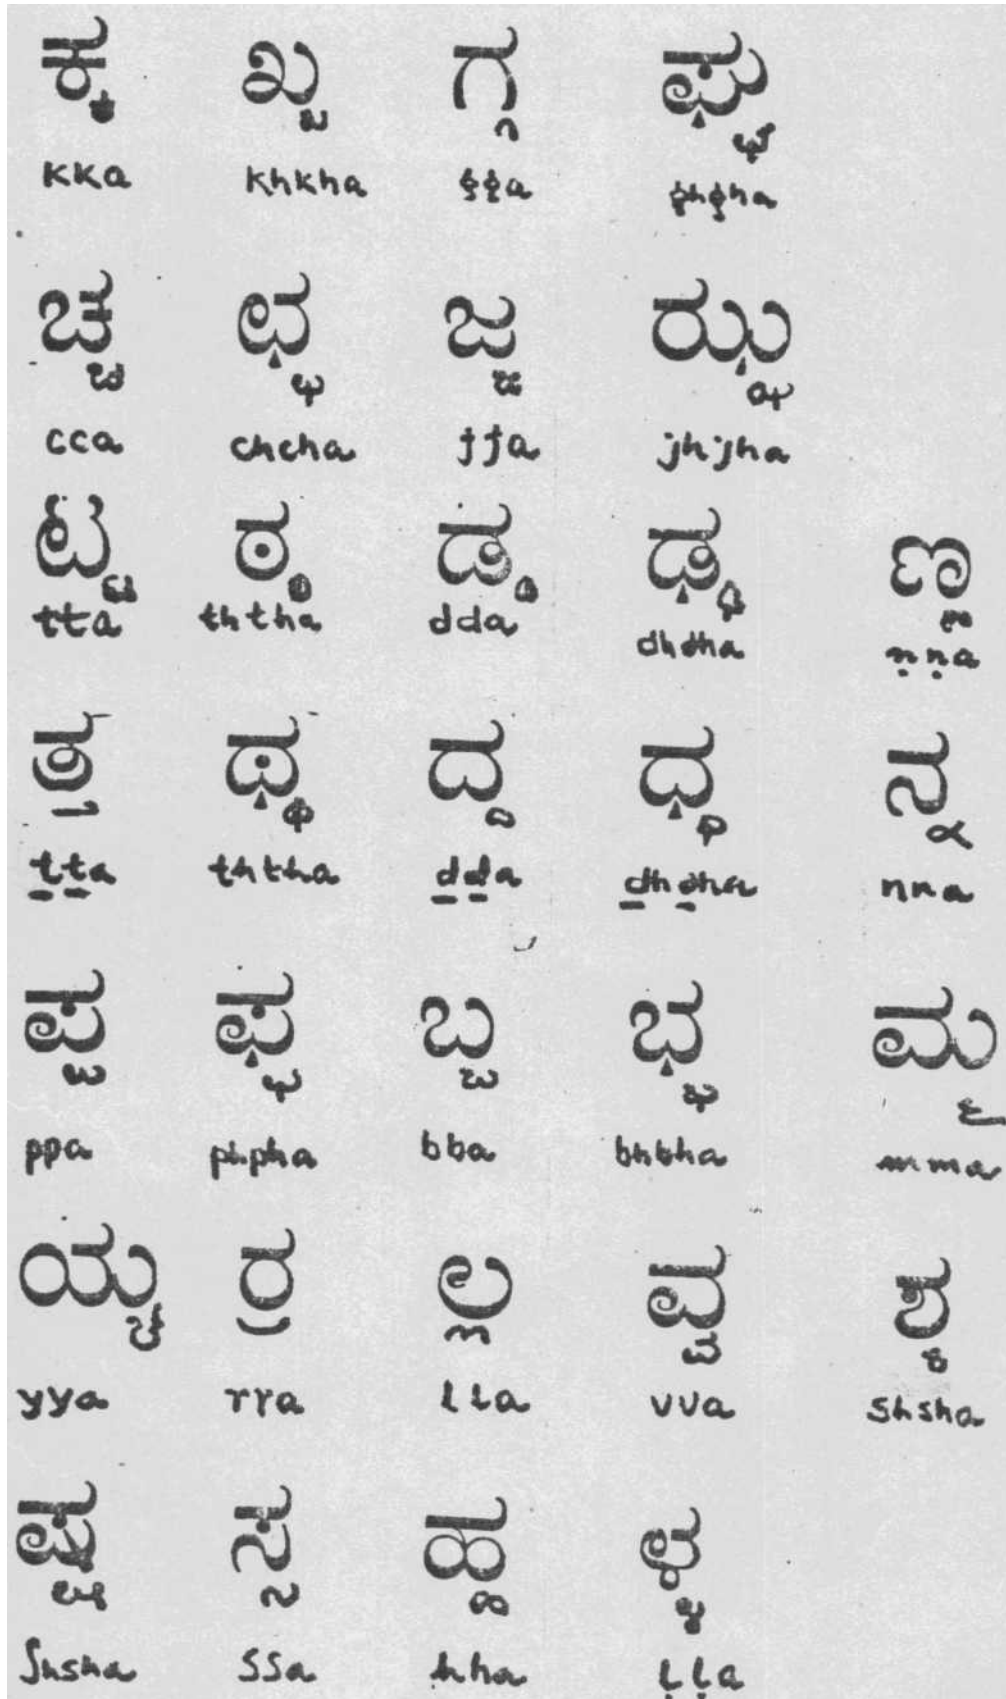 ಕ್ಕ ಖ್ಖ ಗ್ಗ ಘ್ಘ
kka khkha gga ghgha
ಚ್ಚ ಛ್ಛ ಜ್ಜ ಝ್ಝ
cca chcha jja jhjha
ಟ್ಟ ಠ್ಠ ಡ್ಡ ಢ್ಢ ಣ್ಣ
tta ththa dda dhdha ṇṇa
ತ್ತ ಥ್ಥ ದ್ದ ಧ್ಧ ನ್ನ
ṯṯa ththa ḏḏa ḏhḏha nna
ಪ್ಪ ಫ್ಫ ಬ್ಬ ಭ್ಭ ಮ್ಮ
ppa phpha bba bhbha mma
ಯ್ಯ ರ್ರ ಲ್ಲ ವ್ವ ಶ್ಶ
yya rra lla vva shsha
ಷ್ಷ ಸ್ಸ ಹ್ಹ ಳ್ಳ
ʃhsha ssa hha ḷḷa